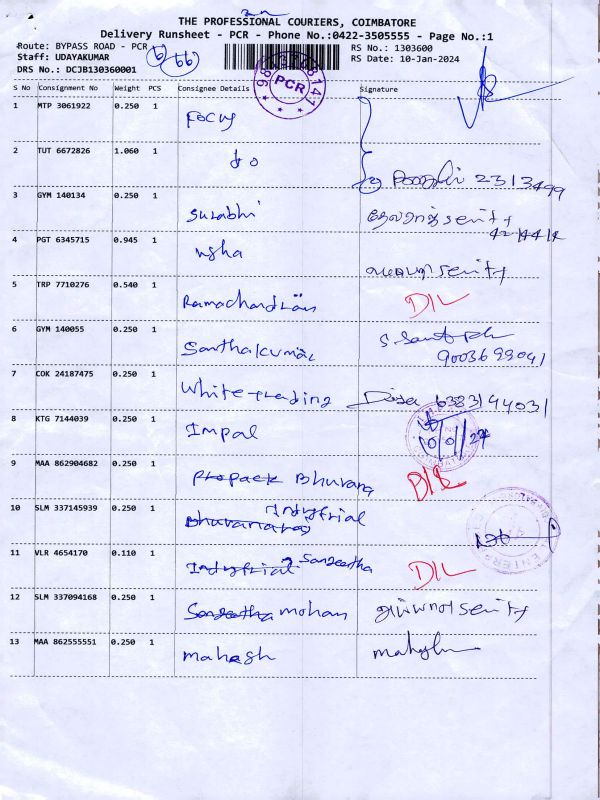 THE PROFESSIONAL COURIERS, COIMBATORE
Delivery Runsheet - PCR - Phone No.:0422-3505555 - Page No.:1
Route: BYPASS ROAD - PCR
RS No.: 1303600
Staff: UDAYAKUMAR
66
RS Date: 10-Jan-2024
DRS No.: DCJB130360001
PCR
S No Consignment No Weight PCS Consignee Details Signature
1 MTP 3061922 0.250 1 Focus
2 TUT 6672826 1.060 1 do
3 GYM 140134 0.250 1 Surabhi
4 PGT 6345715 0.945 1 usha
5 TRP 7710276 0.540 1 Ramachandran D/L
6 GYM 140055 0.250 1 Santhalkumar
9003699041
7 COK 24187475 0.250 1 White-trading
8 KTG 7144039 0.250 1 Impal 10/01/24
9 MAA 862904682 0.250 1 Propack Bhuvana D/L
10 SLM 337145939 0.250 1 Industrial
Bhuvana
11 VLR 4654170 0.110 1 Industrial Sangeetha D/L
12 SLM 337094168 0.250 1 Sangeetha mohan
13 MAA 862555551 0.250 1 mahesh